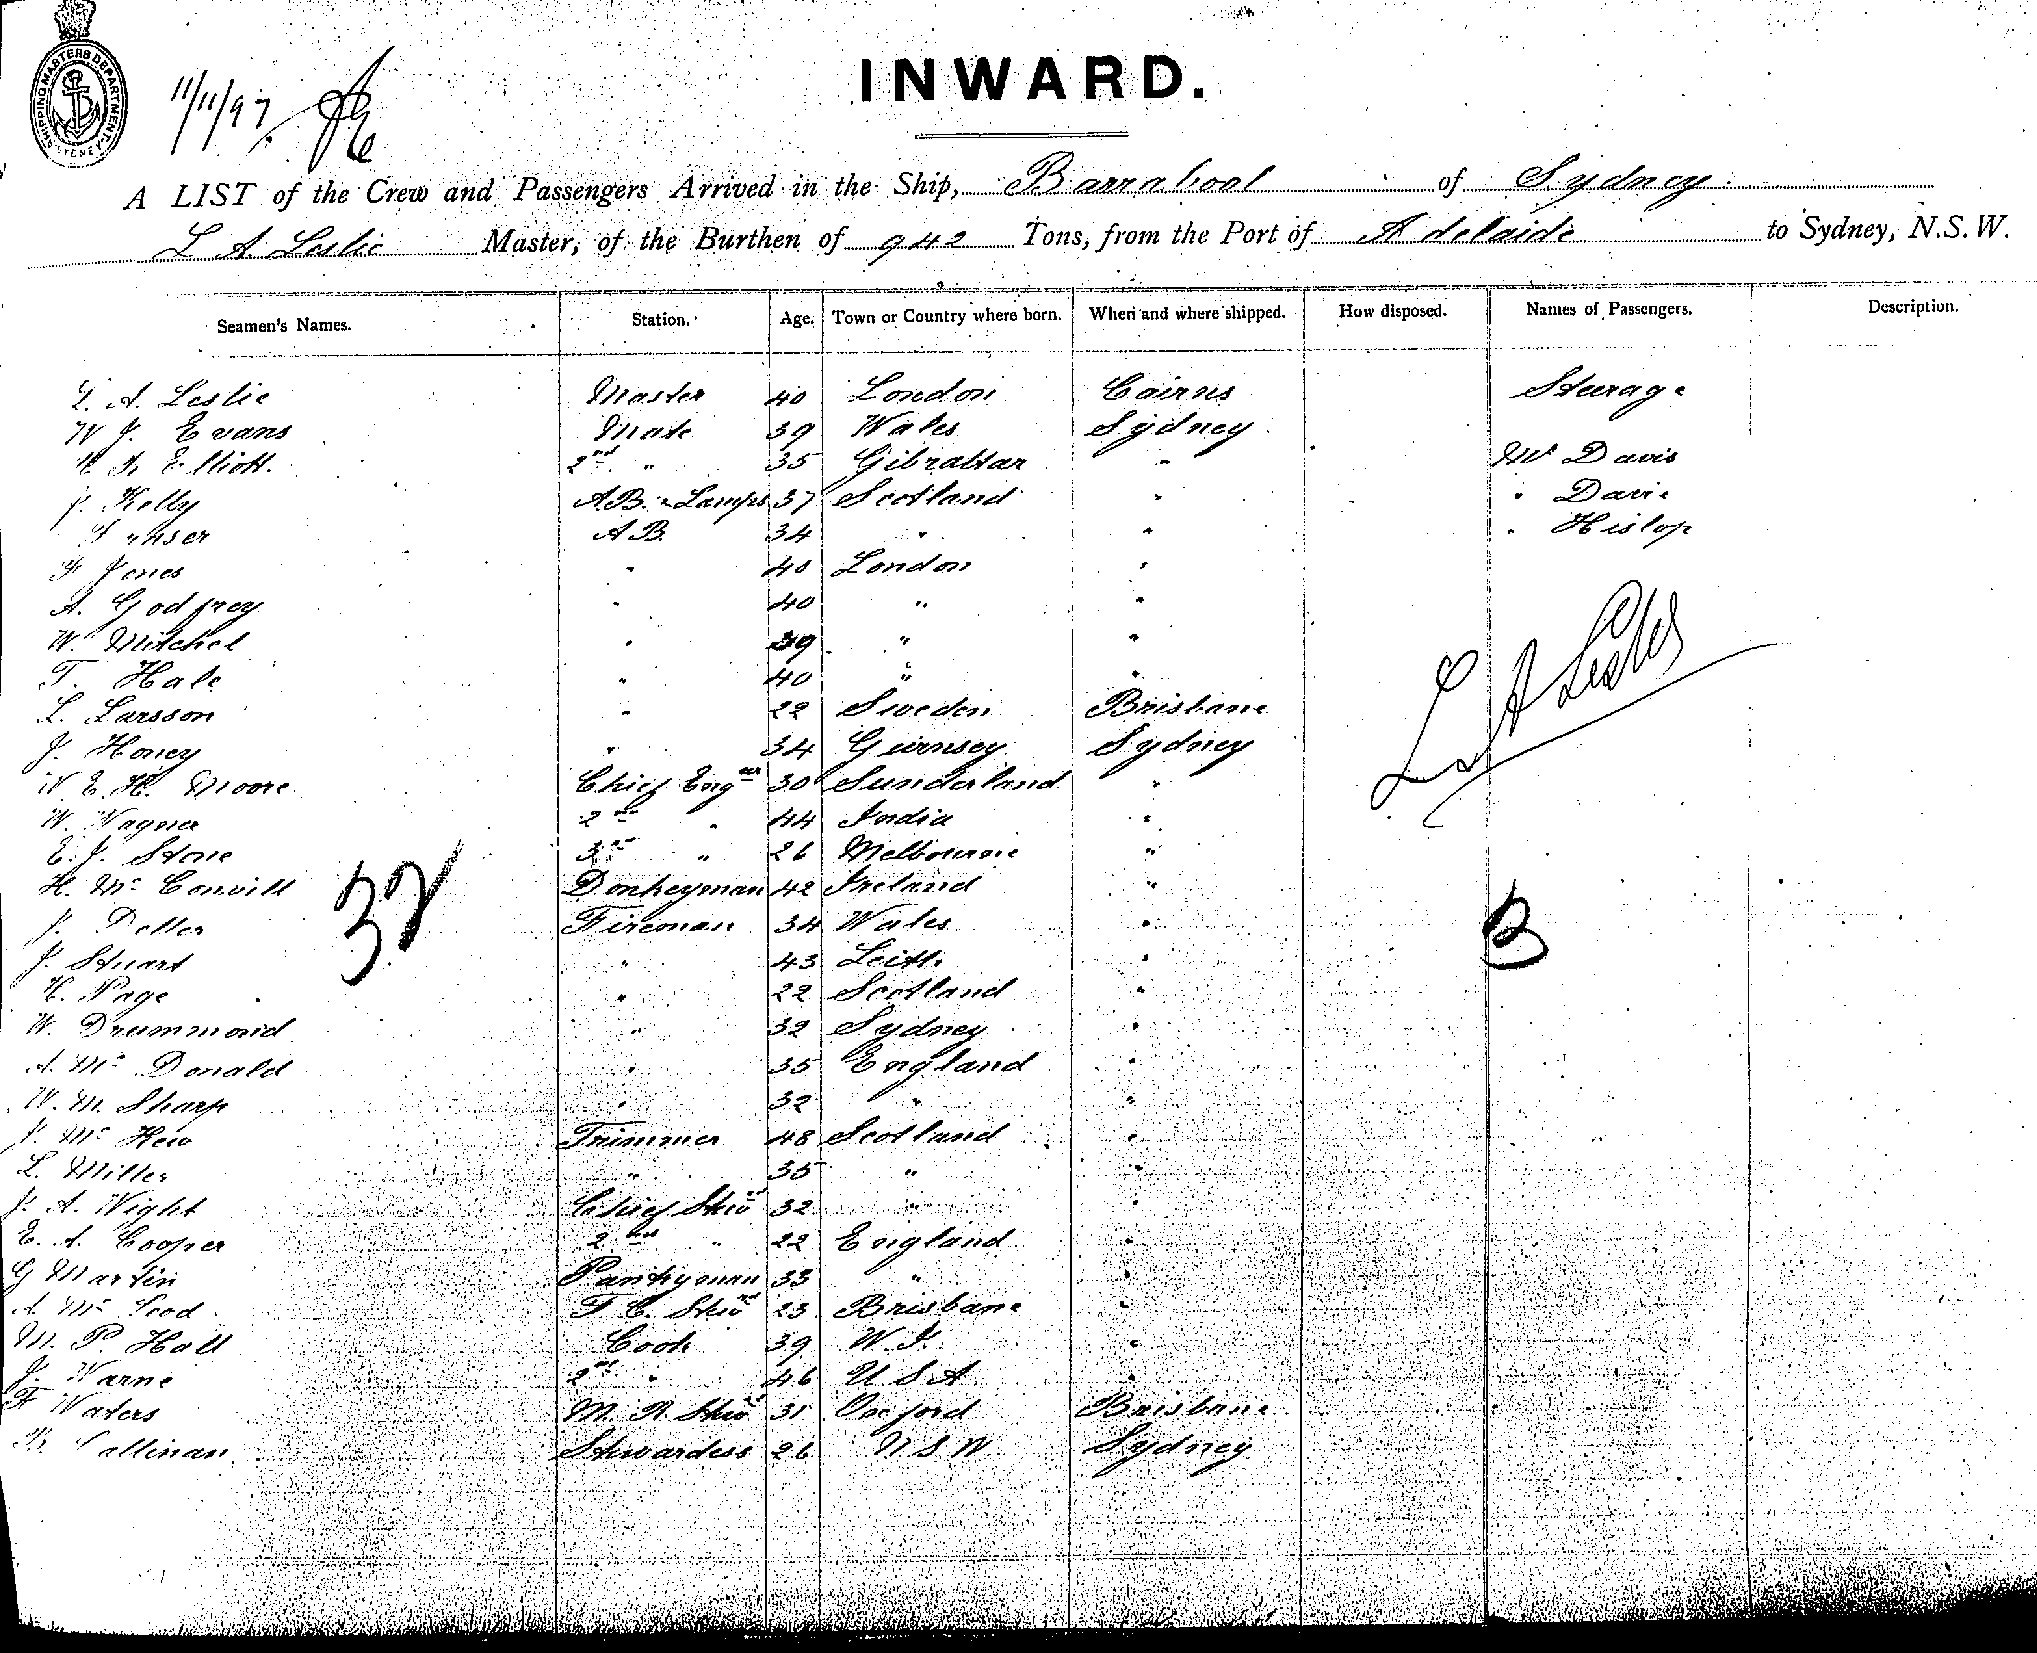 SHIPPING MASTERS DEPARTMENT SYDNEY
11/11/97
INWARD.
A LIST of the Crew and Passengers Arrived in the Ship, Barrabool of Sydney
L A Leslie Master, of the Burthen of 942 Tons, from the Port of Adelaide to Sydney, N.S.W.
Seamen's Names. Station. Age. Town or Country where born. When and where shipped. How disposed. Names of Passengers. Description.
L. A. Leslie Master 40 London Cairns Steerage
W J. Evans Mate 39 Wales Sydney
Elliott. 2nd " 35 Gibraltar " Mr Davis
J. Kelly A.B. & Lamps 37 Scotland " " Davie
A B. 34 " " " Hislop
F Jones " 40 London "
A. Godfrey " 40 " "
W. Mitchel " 39 " "
T. Hale " 40 " "
L. Larsson " 22 Sweden Brisbane
J. Honey " 34 Guernsey Sydney
L A Leslie
W E. H. Moore Chief Engeer 30 Sunderland "
W. Wagner 2nd " 44 India "
E. J. Stone 3rd " 26 Melbourne "
H. Mc Convill Donkeyman 42 Ireland "
32
3
J. Deller Fireman 34 Wales "
J. Stuart " 43 Leith "
H. Page " 22 Scotland "
W. Drummond " 32 Sydney "
A. Mc Donald " 35 England "
W. M. Sharp " 32 " "
J. Mc Hew Trimmer 48 Scotland "
L. Miller " 35 " "
J. A. Wight Chief Stewd 32 " "
E. A. Cooper 2nd " 22 England "
G Martin Pantryman 33 " "
A. Mc Leod F. C. Stewd 23 Brisbane "
M. P. Hall Cook 39 W. I. "
J. Warne 2nd " 46 U S A "
F Waters M. R. Stewd 31 Oxford Brisbane
Callinan Stewardess 26 N S W Sydney